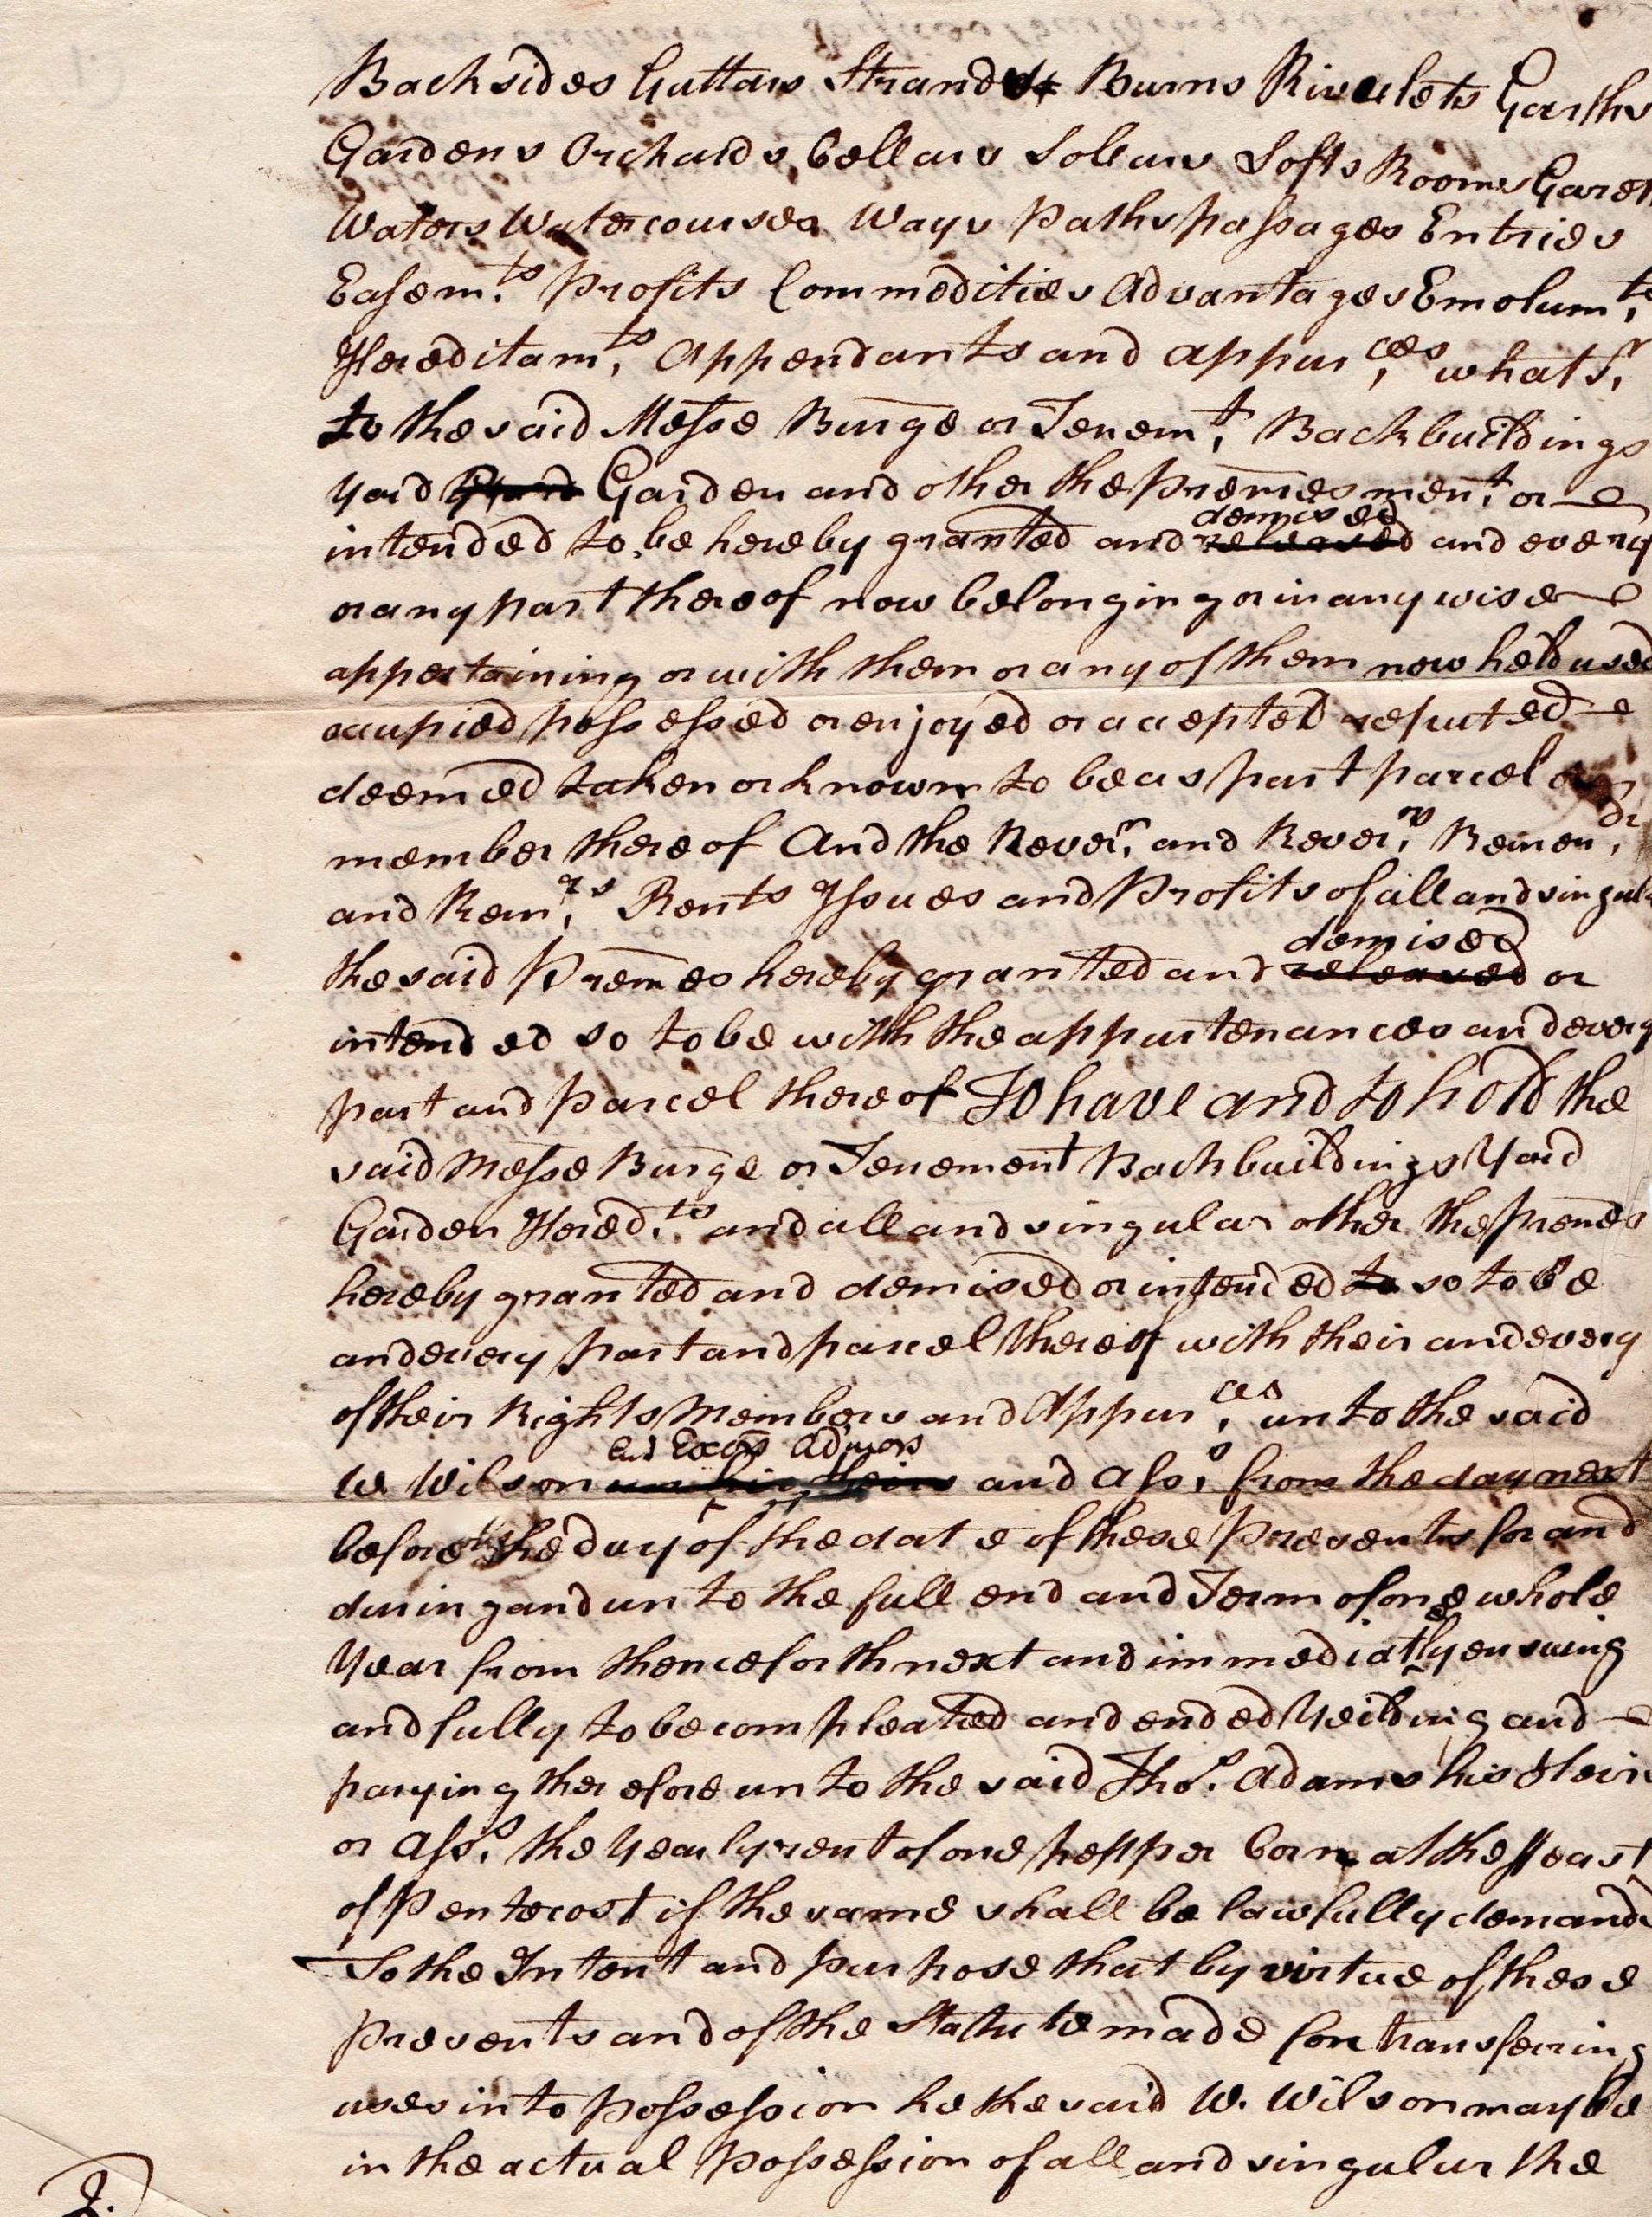 Backsides Guttars Strands Burns Rivulets Garths
Gardens Orchards Cellars Sollars Lofts Rooms Garets
Waters Watercourses Ways Paths passages Entries
Easem.ts Profits Commodities Advantages Emolum.ts
Hereditam.ts Appendants and appur.ces whats.r
to the said Messe Burge or Tenem.t Backbuildings
yard Garden and other the Premes ment.d or
intended to be hereby granted and demised released and every
or any part thereof now belonging or in any wise
appertaining or with them or any of them now held used
occupied possessed or enjoyed or accepted reputed
deemed taken or known to be as part parcel or
member thereof And the Rever.n and Rever.ns Remen.dr
and Rem.rs Rents Issues and Profits of all and singular
the said Premes hereby granted and demised released or
intended so to be with the appurtenances and every
part and parcel thereof To have and to hold the
said Messe Burge or Tenement Backbuildings Yard
Garden Hered.ts and all and singular other the premes
hereby granted and demised or intended to so to be
and every part and parcel thereof with their and every
of their Rights Members and Appur.ces unto the said
W. Wilson his Exors Admors and Ass.s from the day next
before the day of the date of these Presents for and
during and unto the full end and Term of one whole
Year from thenceforth next and immediatly ensuing
and fully to be compleated and ended Yeilding and
paying therefore unto the said Tho.s Adams his Heirs
or Ass.s the Yearly rent of one pepper Corn at the ffeast
of Pentecost if the same shall be lawfully demanded
To the Intent and purpose that by virtue of these
presents and of the Statute made for transferring
uses into possession he the said W. Wilson may be
in the actual possession of all and singular the
2.